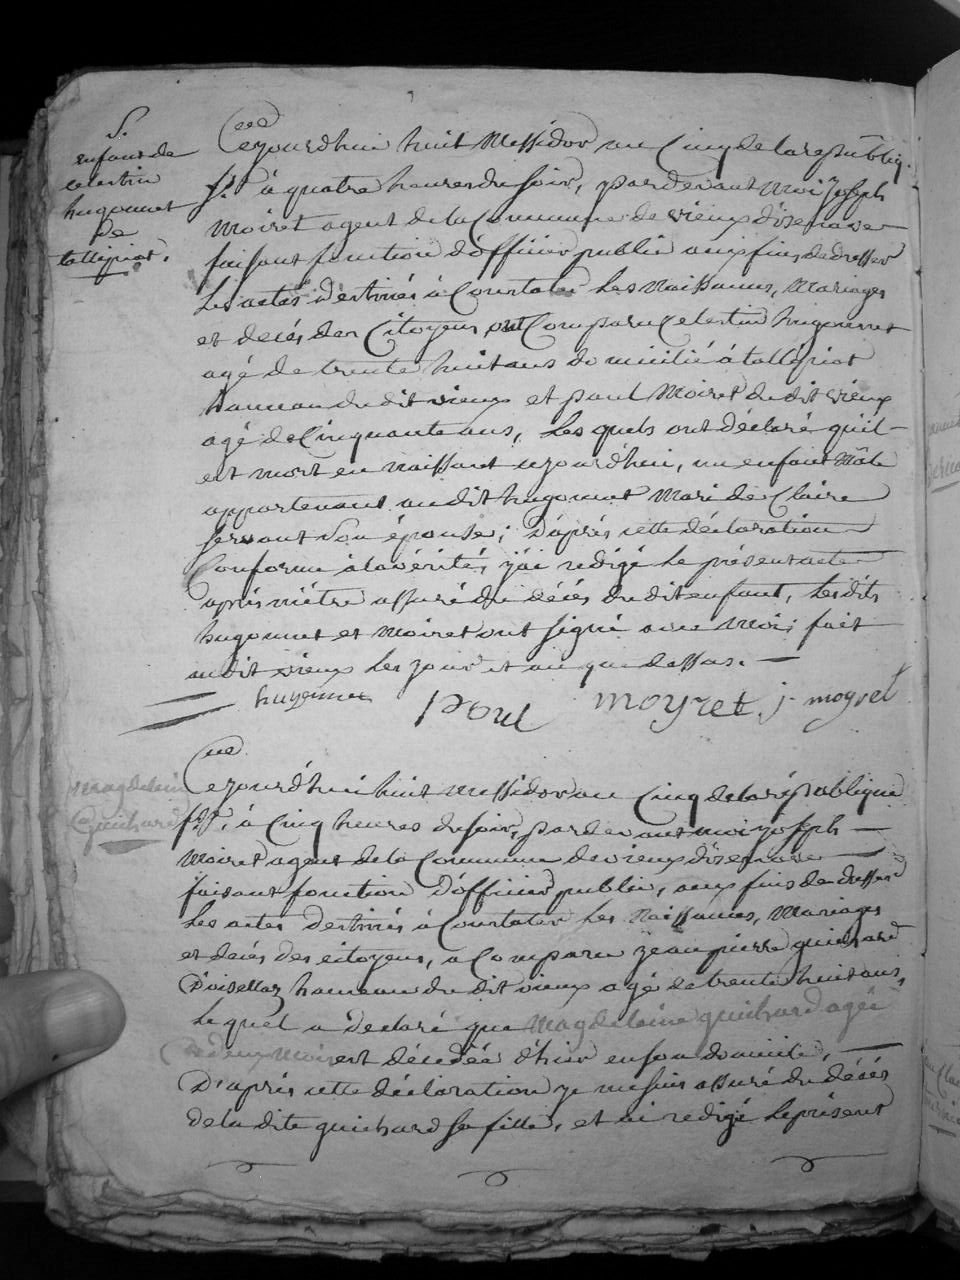 S.
enfant de
celestin
hugonnet
de
tallipiat.
Cejourd'hui huit Messidor an Cinq de la republiq.
fse à quatre heures du soir, pardevant Moi Joseph
Moiret agent de la Commune de vieux d'izenave
faisant fonction d'officier public aux fins de dresser
Les actes destinés à Constater Les Naissances, Mariages
et decés des Citoyens ont Comparu Celestin hugonnet
agé de trente huit ans domicilié à tallipiat
hameau du dit vieux et paul Moiret du dit vieux
agé de Cinquante ans, Les quels ont déclaré qu'il
est mort en naissant cejourd'hui, un enfant Mâle
appartenant au dit hugonnet Mari de Claire
servant son épouse; d'après cette déclaration
Conforme à la vérité, j'ai redigé Le présent acte
après m'être assuré du décés du dit enfant, Les dits
hugonnet et Moiret ont signé avec Moi; fait
au dit vieux Les jour et an que dessus.
hugonnet Poul moyret j. moyret
Magdelaine
Guichard
Cejourd'hui huit Messidor an Cinq de la république
fse, à Cinq heures du soir, pardevant moi joseph
Moiret agent de la Commune de vieux d'izenave
faisant fonction d'officier public, aux fins de dresser
Les actes destinés à Constater Les Naissances, Mariages
et decés des citoyens, a Comparu jean pierre guichard
D'oisellaz hameau du dit vieux agé de trente huit ans,
Le quel a déclaré que Magdelaine guichard agée
de deux Mois est décedée d'hier en son domicile,
D'après cette déclaration je me suis assuré du décés
de la dite guichard sa fille, et ai redigé Le présent